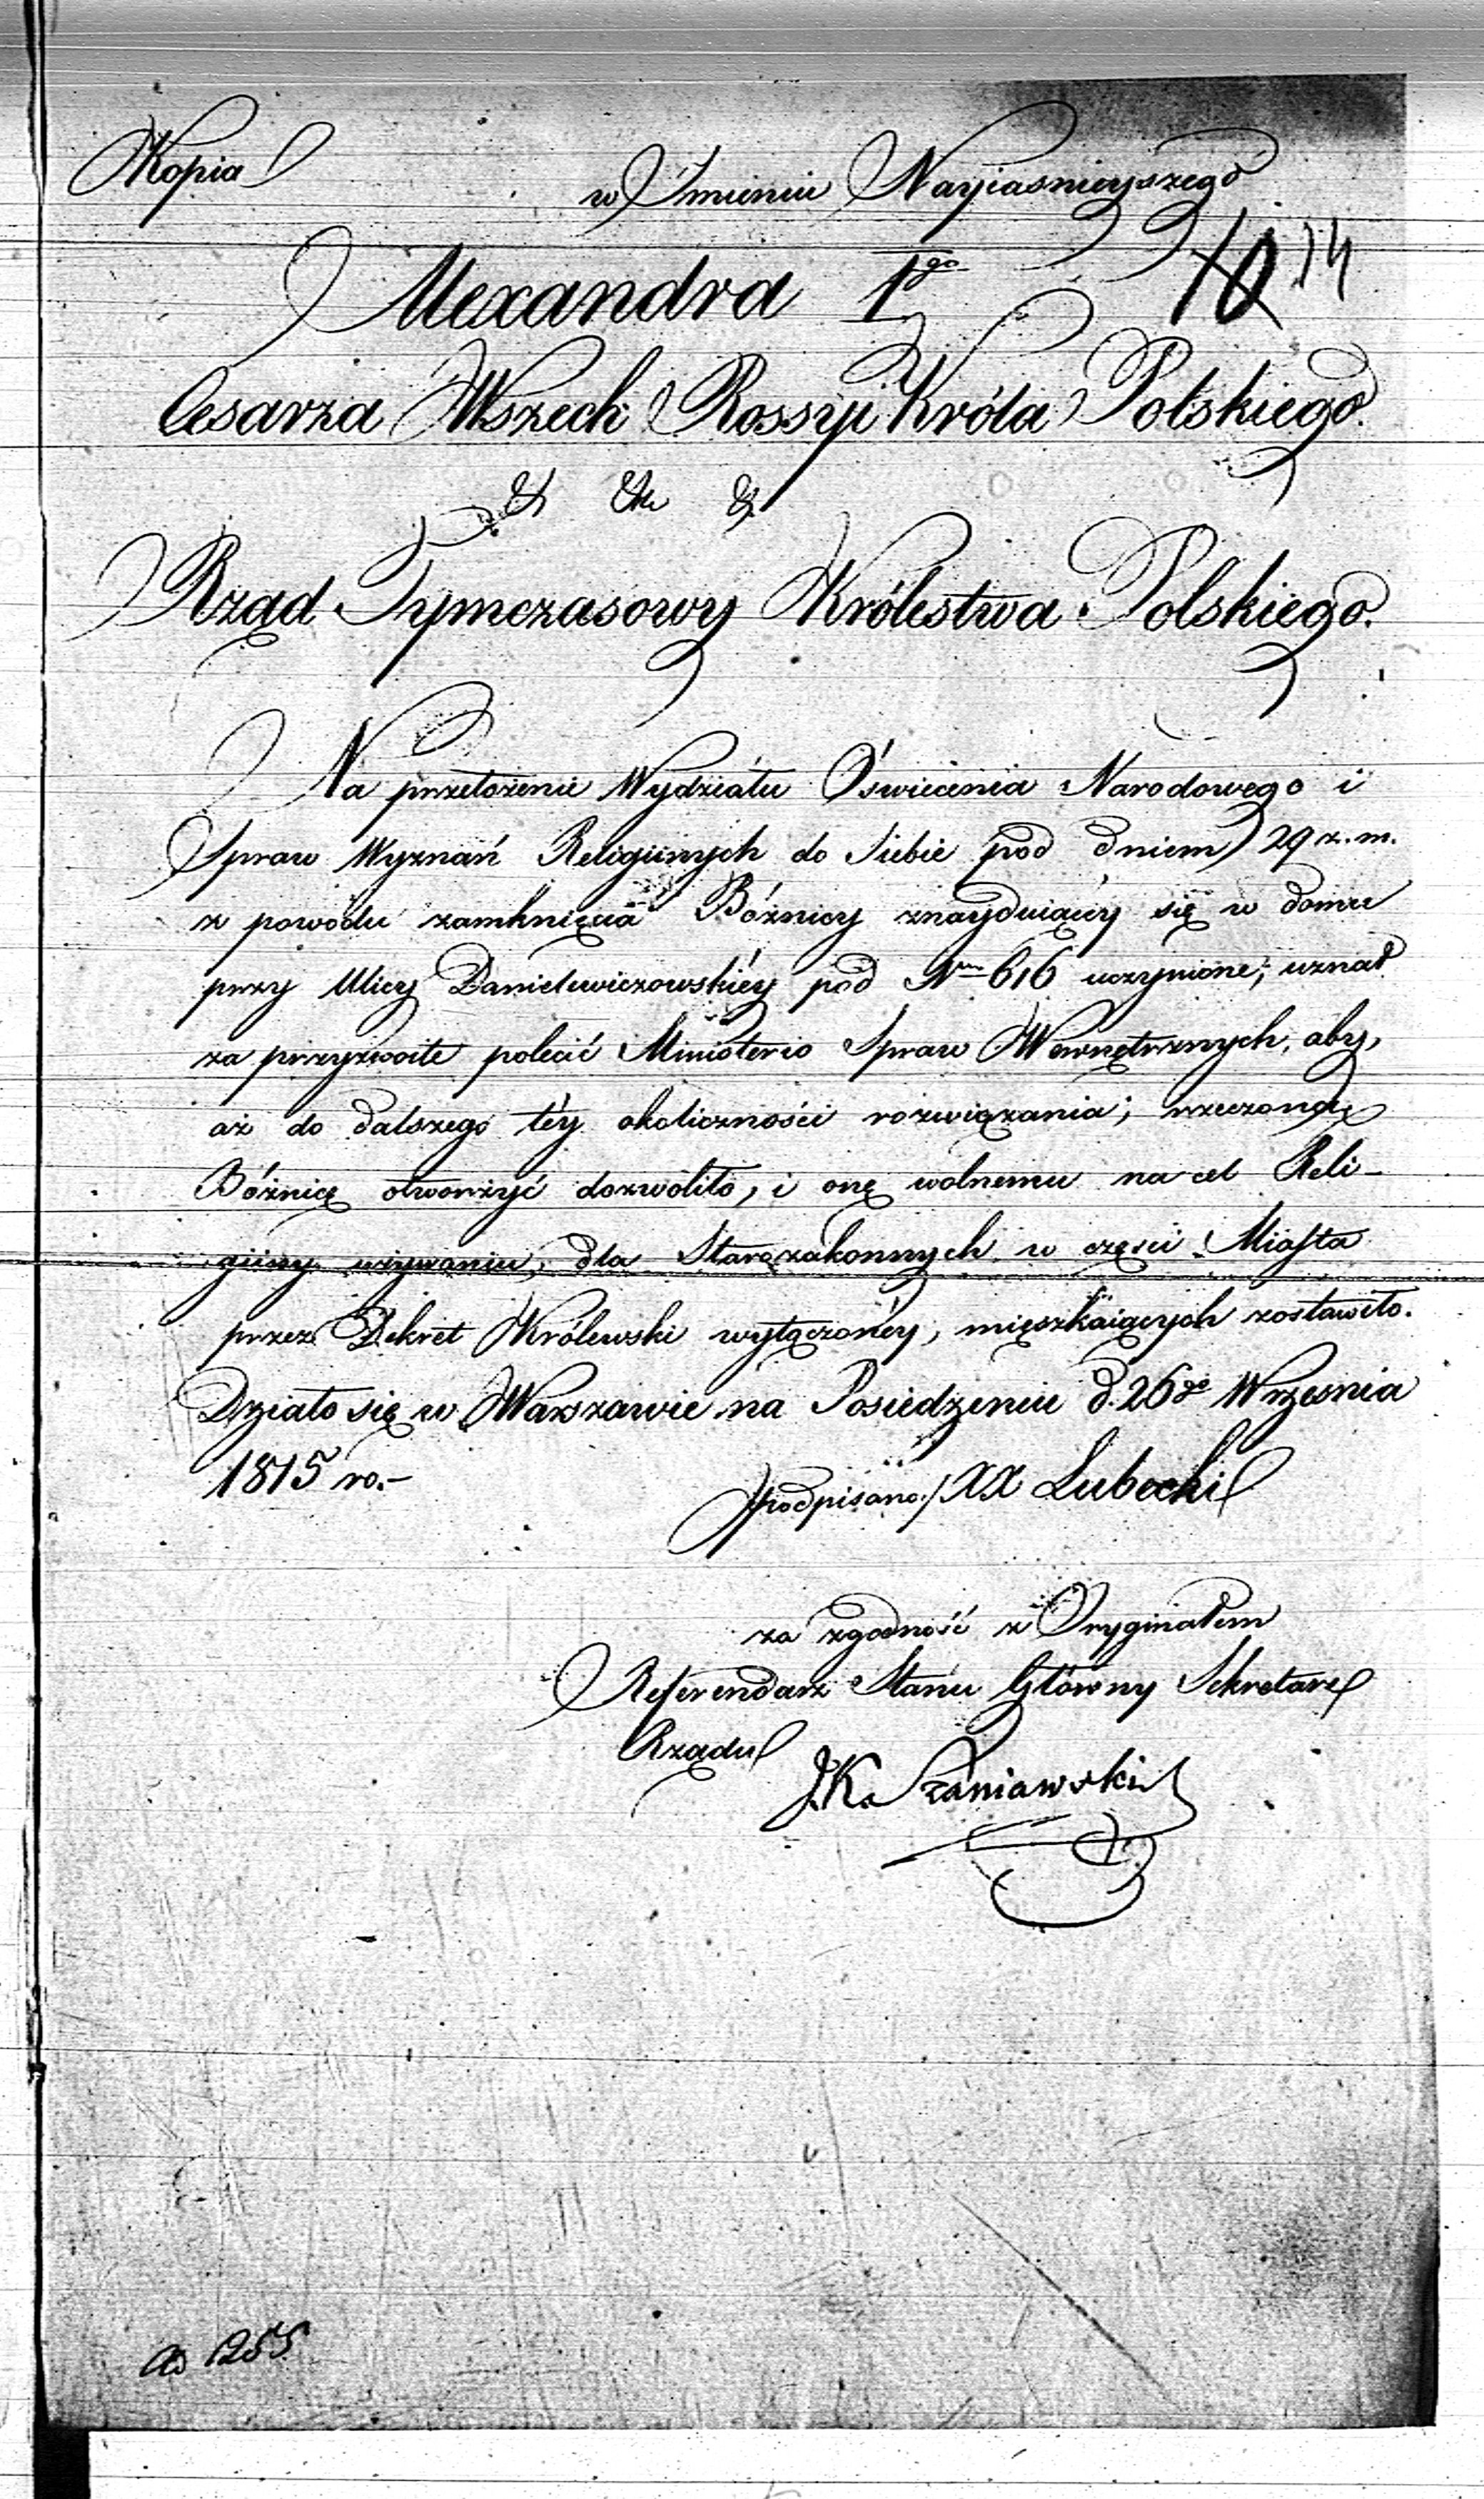 Kopia
w Imieniu Nayiasnieyszego
10 14
Alexandra 1go
Cesarza Wszech Rossyi Króla Polskiego.
& & &
Rząd Tymczasowy Królestwa Polskiego.
Na przełożenie Wydziału Oświecenia Narodowego i
Spraw Wyznań Religiinych do Siebie pod dniem 29 z. m.
z powodu zamknięcia Bóżnicy znayduiącéy się w domu
przy Ulicy Danielewiczowskiéy pod Nrm 616 uczynione; uznał
za przyzwoite polecić Ministerio Spraw Wewnętrznych, aby,
aż do dalszego téy okoliczności rozwiązania; rzeczoną
Bóżnicę otworzyć dozwoliło, i onę wolnemu na cel Reli-
giiny używaniu, dla Starozakonnych w części Miasta
przez Dekret Królewski wyłączonéy, mięszkaiących zostawiło.
Działo się w Warszawie na Posiedzeniu d. 26go Września
1815 ro.-
/podpisano:/ XX Lubecki
za zgodność z Oryginałem
Referendarz Stanu Główny Sekretarz
Rządu
J.K. Szaniawski
ad 1255